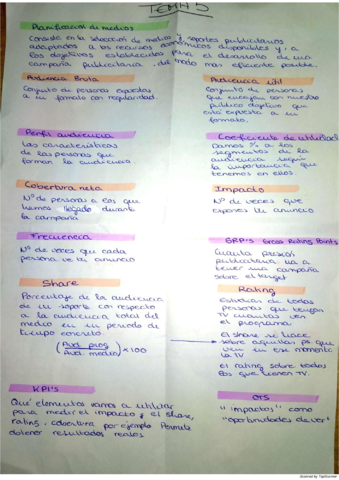 TEMA 5
Planificación de medios
Consiste en la selección de medios y soportes publicitarios
adaptados a los recursos económicos disponibles y, a
los objetivos establecidos para el desarrollo de una
campaña publicitaria, del modo más eficiente posible.
Audiencia Bruta
Conjunto de personas expuestas
a un formato con regularidad
Audiencia útil
Conjunto de personas
que encajan con nuestro
público objetivo que
está expuesto a un
formato.
Perfil audiencia
Las características
de las personas que
forman la audiencia
Coeficiente de utilización
Damos % a los
segmentos de la
audiencia según
la importancia que
tenemos en ellos
Cobertura neta
Nº de personas a los que
hemos llegado durante
la campaña
Impacto
Nº de veces que
expones tu anuncio
Frecuencia
Nº de veces que cada
persona ve tu anuncio
GRP's Gross Rating Points
Cuanta presión
publicitaria va a
tener una campaña
sobre el target
Share
Porcentaje de la audiencia
de un soporte con respecto
a la audiencia total del
medio en un periodo de
tiempo concreto.
(Aud. prog / Aud. medio) x 100
Rating
de todas
personas que tengan
TV cuantas ven
el programa
el share se hace
sobre aquellas ps que
ven en ese momento
la TV
el rating sobre todos
los que tienen TV.
KPI's
Qué elementos vamos a utilizar
para medir el impacto y el share,
rating, cobertura por ejemplo. Permite
obtener resultados reales
OTS
"impactos" como
"oportunidades de ver"
Scanned by TapScanner